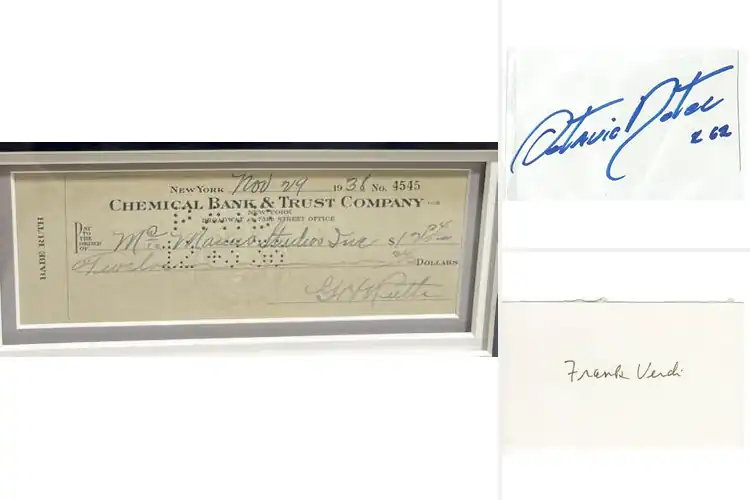 NEW YORK Nov 29 1938 No. 4545
CHEMICAL BANK & TRUST COMPANY
NEW YORK
BROADWAY AT 73RD STREET OFFICE
BABE RUTH
PAY TO THE ORDER OF Studios Inc $12
Twelve DOLLARS
G H Ruth
Octavio Dotel
Frank Verdi